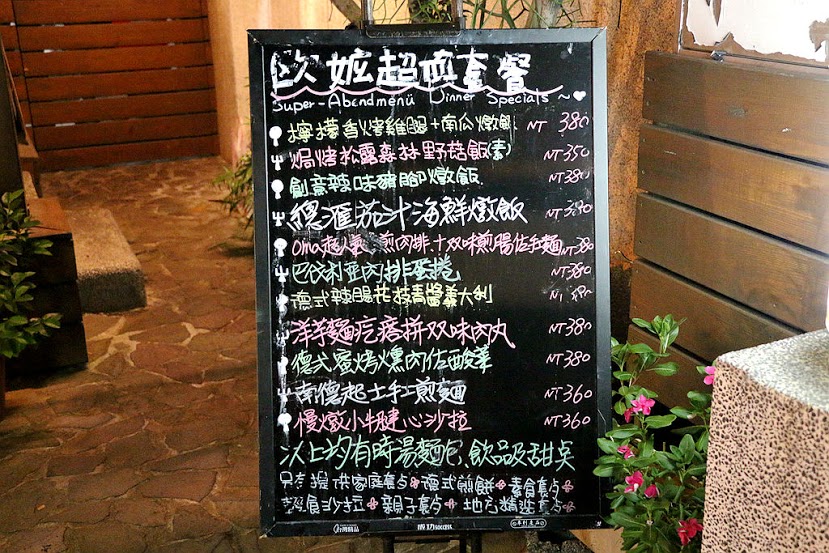 歐嬤超值套餐
Super-Abendmenü Dinner Specials ~
檸檬香烤雞腿+南瓜燉飯 NT 380
焗烤松露森林野菇飯(素) NT 350
創意辣味豬腳燉飯 NT 380
總滙茄汁海鮮燉飯 NT 390
Oma超人氣煎肉排+双味煎腸佐手麵 NT 380
巴伐利亞肉排蛋捲 NT 380
德式辣腸花枝青醬義大利 NT
洋芋麵疙瘩拼双味肉丸 NT 380
德式蜜烤燻肉佐酸菜 NT 380
南德起士手工煎麵 NT 360
慢燉小牛腱心沙拉 NT 360
以上均有時湯麵包、飲品及甜点
只有提供家庭套点 德式煎餅 素食套点
輕食沙拉 親子套点 地方精選套点
台灣精品 成功success 專利產品